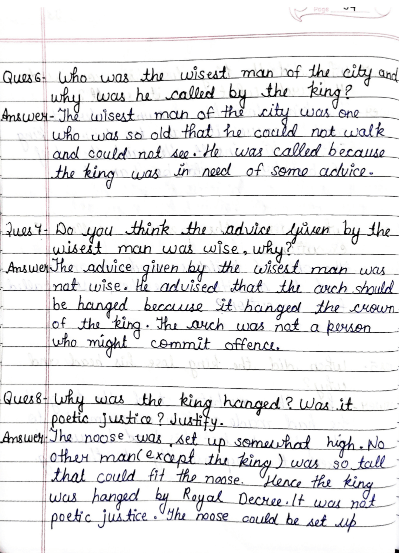 Page
Ques 6- Who was the wisest man of the city and
why was he called by the king?
Answer- The wisest man of the city was one
who was so old that he could not walk
and could not see. He was called because
the king was in need of some advice.
Ques 7- Do you think the advice given by the
wisest man was wise, why?
Answer The advice given by the wisest man was
not wise. He advised that the arch should
be hanged because it hanged the crown
of the king. The arch was not a person
who might commit offence.
Ques 8- Why was the king hanged? Was it
poetic justice? Justify.
Answer- The noose was set up somewhat high. No
other man (except the king) was so tall
that could fit the noose. Hence the king
was hanged by Royal Decree. It was not
poetic justice. The noose could be set up